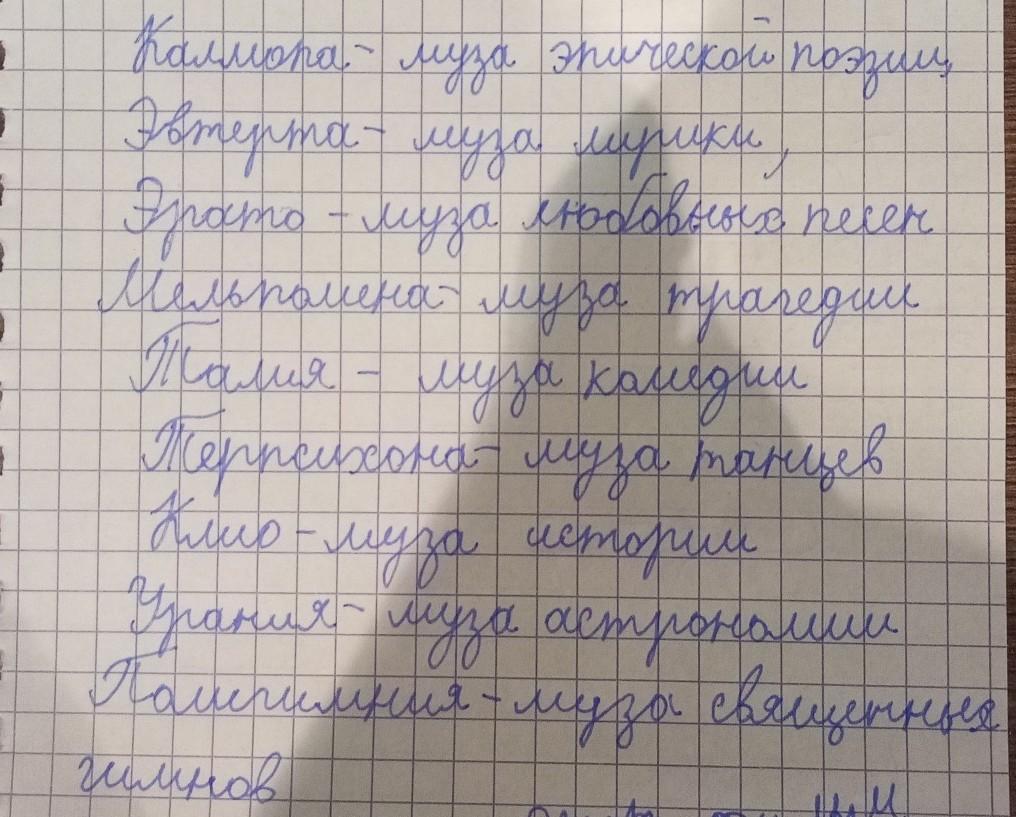 Каллиопа - муза эпической поэзии,
Эвтерпа - муза лирики,
Эрато - муза любовных песен
Мельпомена - муза трагедии
Талия - муза комедии
Терпсихона - муза танцев
Клио - муза истории
Урания - муза астрономии
Полигимния - муза священных
гимнов